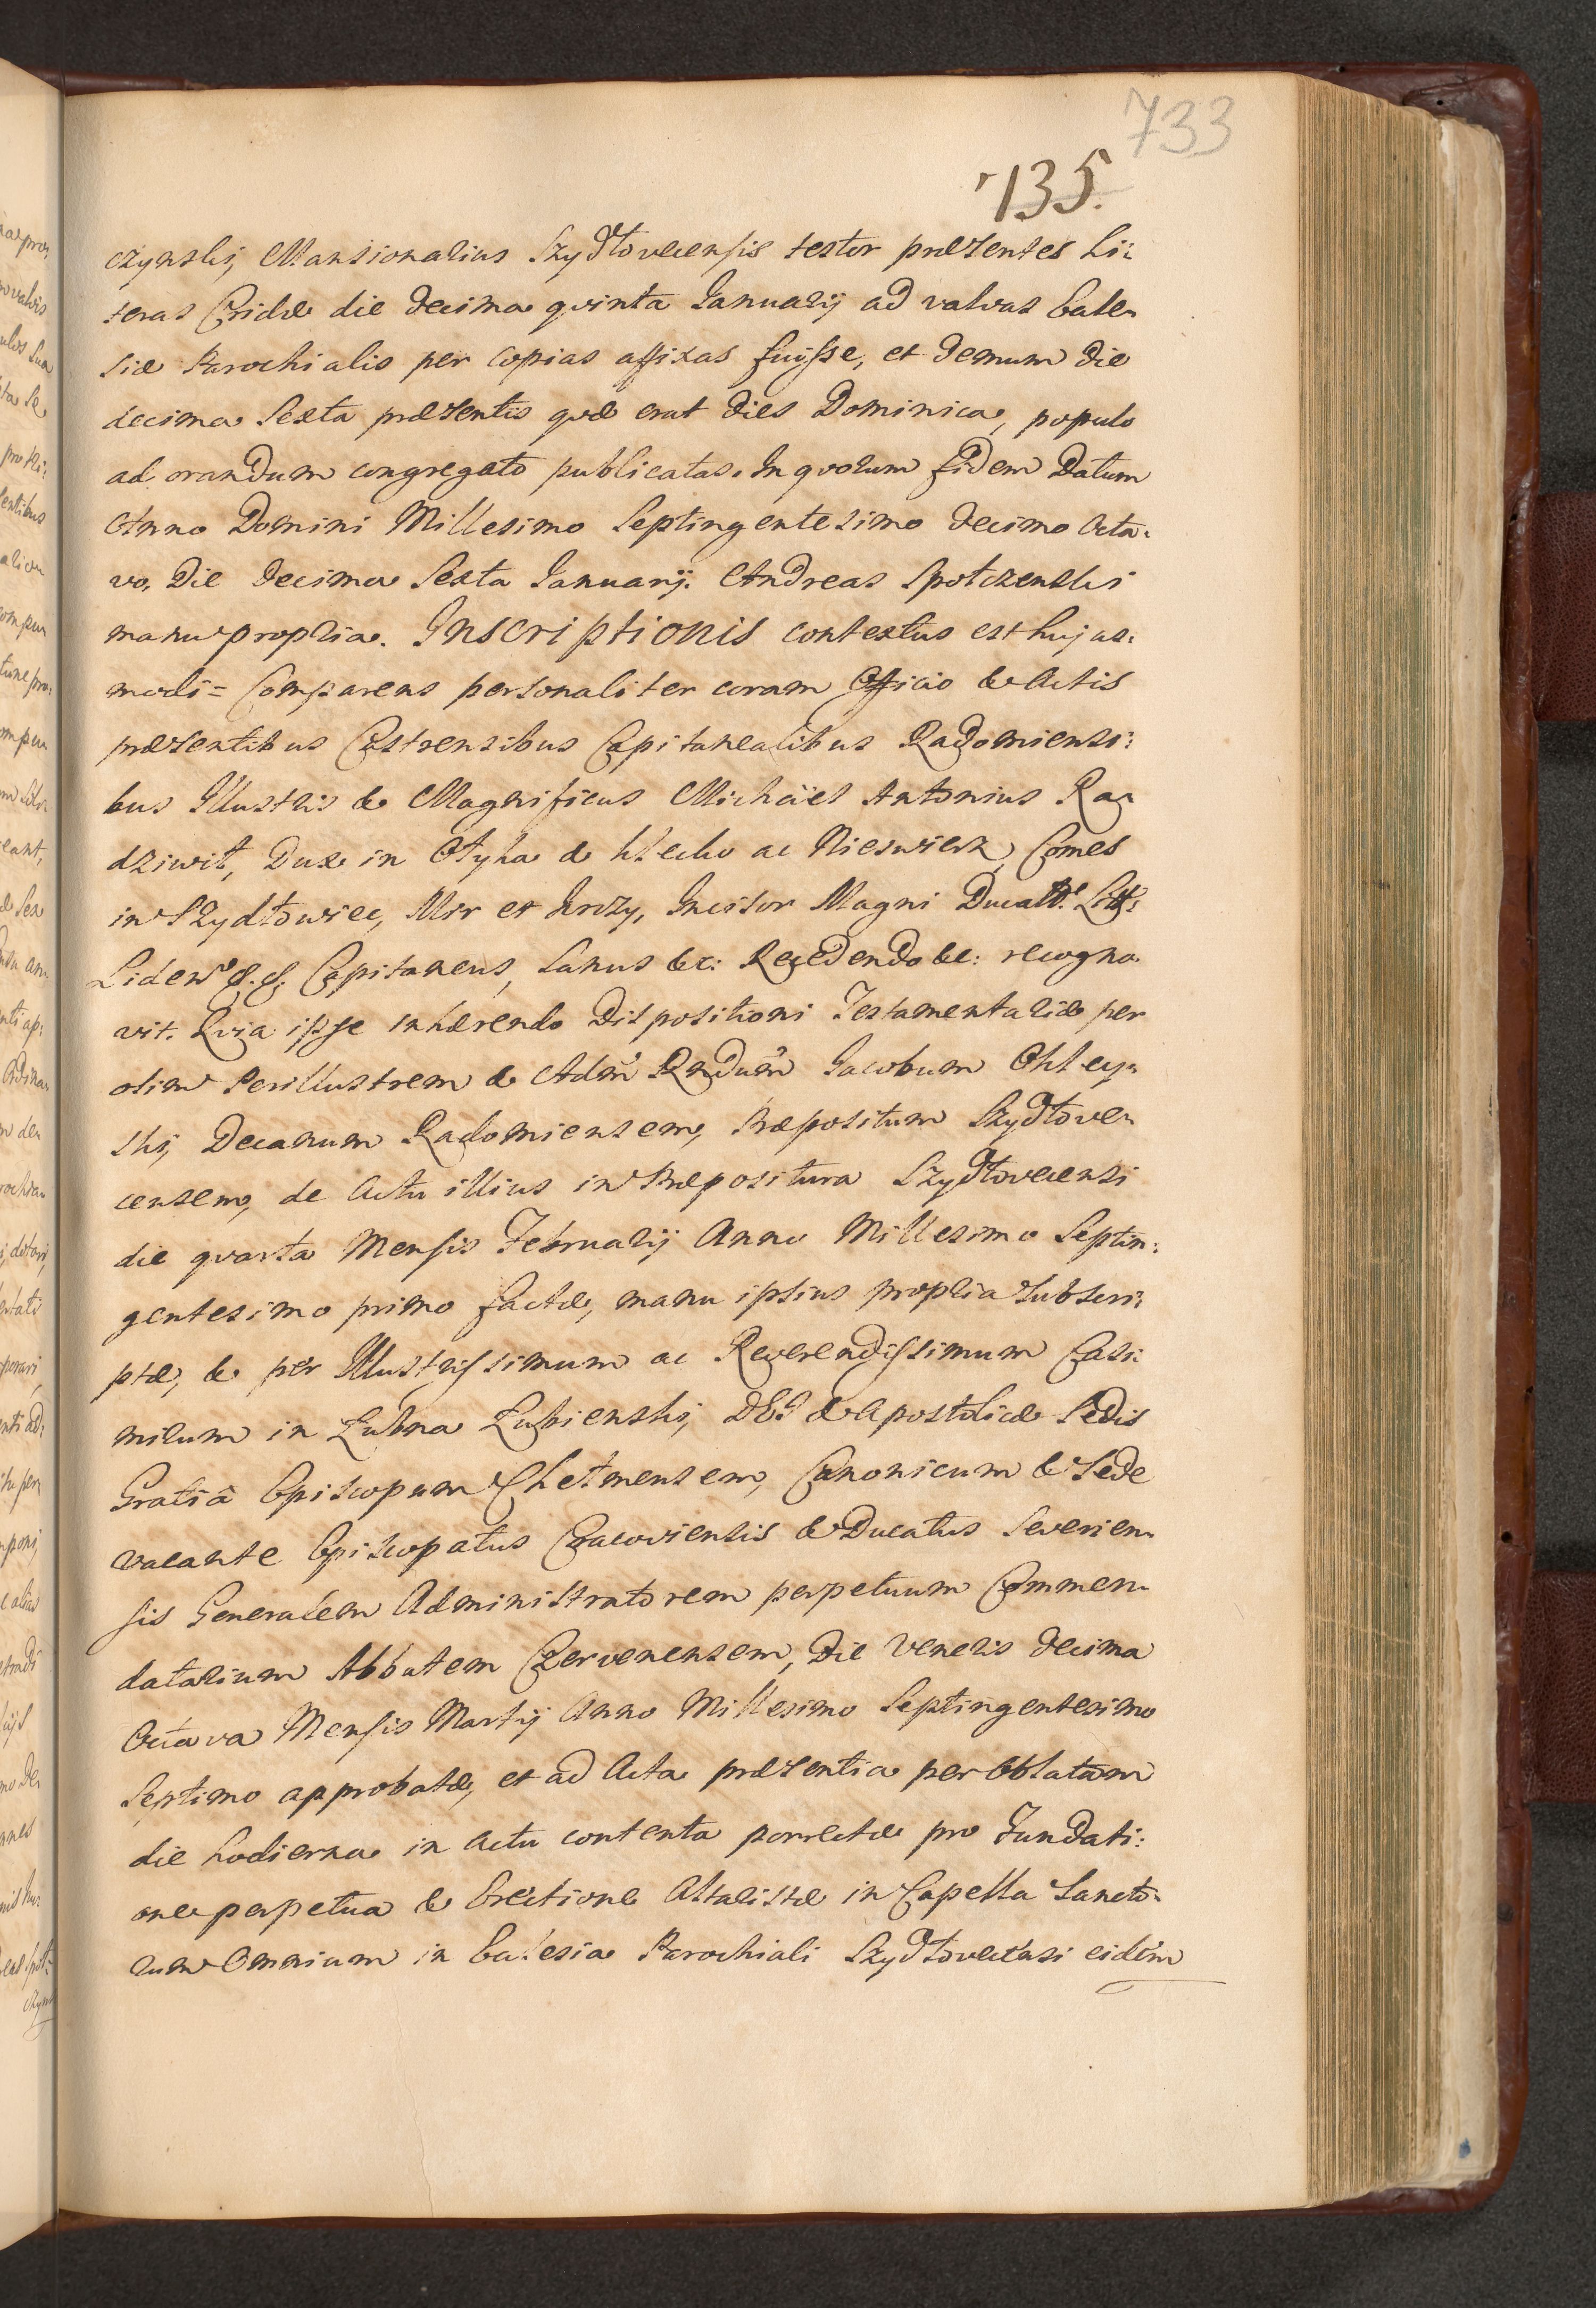 733
735.
czynski, Mansionarius Szydłoveensis testor præsentes Li:
teras Cridæ die decima quinta Januarij ad valvas Eccle-
siæ Parochialis per copias affixas fuisse, et demum die
decima Sexta præsentis quæ erat dies Dominica, populo
ad orandum congregato publicatas. In quorum fidem Datum
Anno Domini Millesimo Septingentesimo decimo Octa-
vo, Die decima Sexta Januarij. Andreas Spotczenski
manu propria. Inscriptionis contextus est hujus-
modi = Comparens personaliter coram Officio & Actis
præsentibus Castrensibus Capitanealibus Radomiensi:
bus Illustris & Magnificus Michäel Antonius Ra-
dziwił, Dux in Ołyka & Klecko ac Nieswierz, Comes
in Szydłowiec, Mir et Krozy, Incisor Magni Ducatt: Litt:
Liden &. &. Capitaneus, Sanus &c: Recedendo &c: recogno-
vit. Quia ipse inhærendo Dispositioni Testamentariæ per
olim Perillustrem & Adm̃ Rndum̃ Jacobum Okley-
ski, Decanum Radomiensem, Præpositum Szydłove-
censem, de Actu illius in Præpositura Szydłovecensi
die quarta Mensis Februarij Anno Millesimo Septin:
gentesimo primo factæ, manu ipsius propria subscri:
ptæ, & per Illustrissimum ac Reverendissimum Casi:
mirum in Łubna Łubienski, DEI & Apostolicæ Sedis
Gratiâ Episcopum Chełmensem, Canonicum & Sede
vacante Episcopatus Cracoviensis & Ducatus Severien-
sis Generalem Administratorem perpetuum Commen-
datarium Abbatem Czervenensem, Die Veneris decima
Octava Mensis Martij Anno Millesimo Septingentesimo
Septimo approbatæ, et ad Acta præsentia per Oblatam
die hodierna in Actu contenta porrectæ pro Fundati:
one perpetua & Erectione Altaristæ in Capella Sancto-
rum Omnium in Ecclesia Parochiali Szydłovecensi eidem